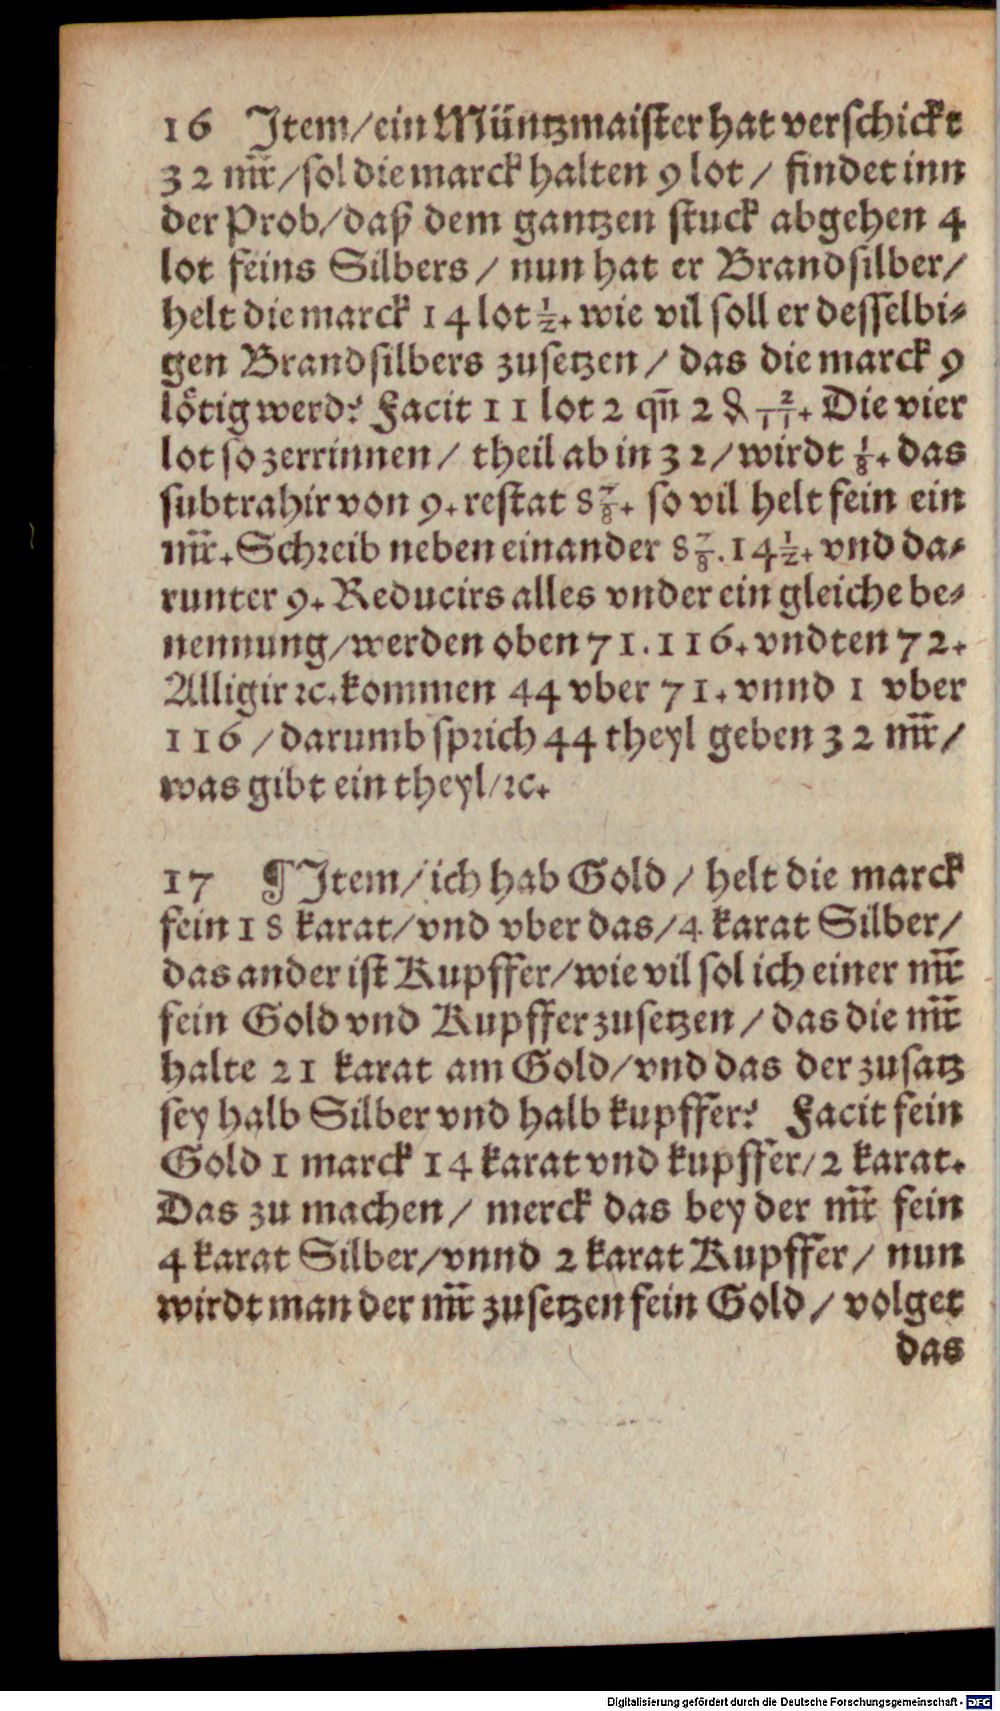 16 Item/ein Müntzmaister hat verschickt
32 mr̄/sol die marck halten 9 lot/ findet inn
der Prob/daß dem gantzen stuck abgehen 4
lot feins Silbers/ nun hat er Brandsilber/
helt die marck 14 lot ½. wie vil soll er desselbi⸗
gen Brandsilbers zusetzen/ das die marck 9
lötig werd? Facit 11 lot 2 qn̄ 2 ₰ 2/11. Die vier
lot so zerrinnen/ theil ab in 32/wirdt ⅛. das
subtrahir von 9. restat 8⅞. so vil helt fein ein
mr̄. Schreib neben einander 8⅞. 14½. vnd da⸗
runter 9. Reducirs alles vnder ein gleiche be⸗
nennung/werden oben 71. 116. vndten 72.
Alligir ꝛc. kommen 44 vber 71. vnnd 1 vber
116/darumb sprich 44 theyl geben 32 mr̄/
was gibt ein theyl/ꝛc.
17 ¶ Item/ich hab Gold/ helt die marck
fein 18 karat/vnd vber das/4 karat Silber/
das ander ist Kupffer/wie vil sol ich einer mr̄
fein Gold vnd Kupffer zusetzen/das die mr̄
halte 21 karat am Gold/vnd das der zusatz
sey halb Silber vnd halb kupffer? Facit fein
Gold 1 marck 14 karat vnd kupffer/2 karat.
Das zu machen/ merck das bey der mr̄ fein
4 karat Silber/vnnd 2 karat Kupffer/ nun
wirdt man der mr̄ zusetzen fein Gold/ volget
das
Digitalisierung gefördert durch die Deutsche Forschungsgemeinschaft - DFG